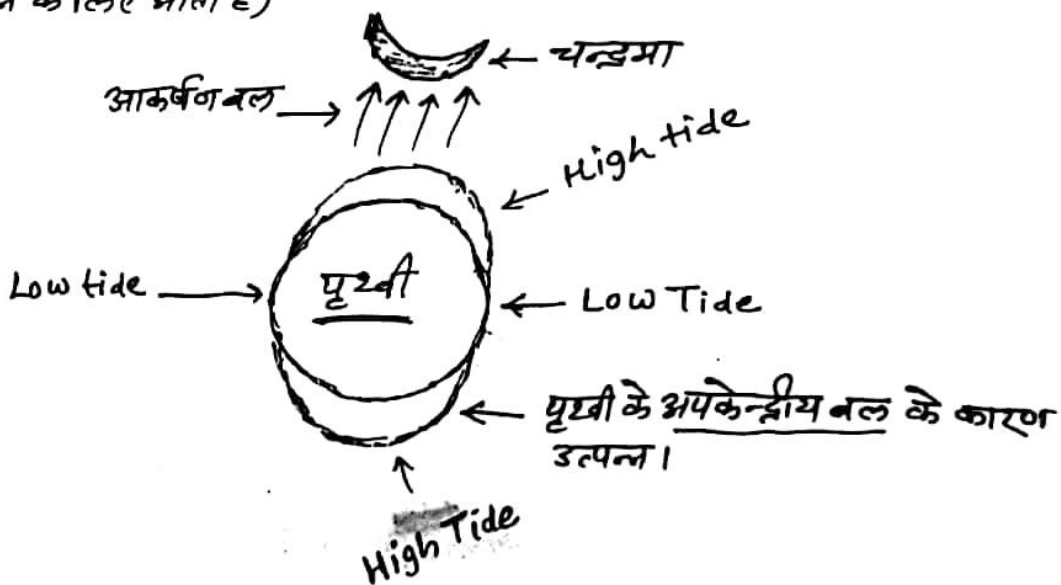 के लिए
← चन्द्रमा
आकर्षण बल →
← High tide
Low tide →
पृथ्वी
← Low Tide
← पृथ्वी के अपकेन्द्रीय बल के कारण
उत्पन्न।
High Tide